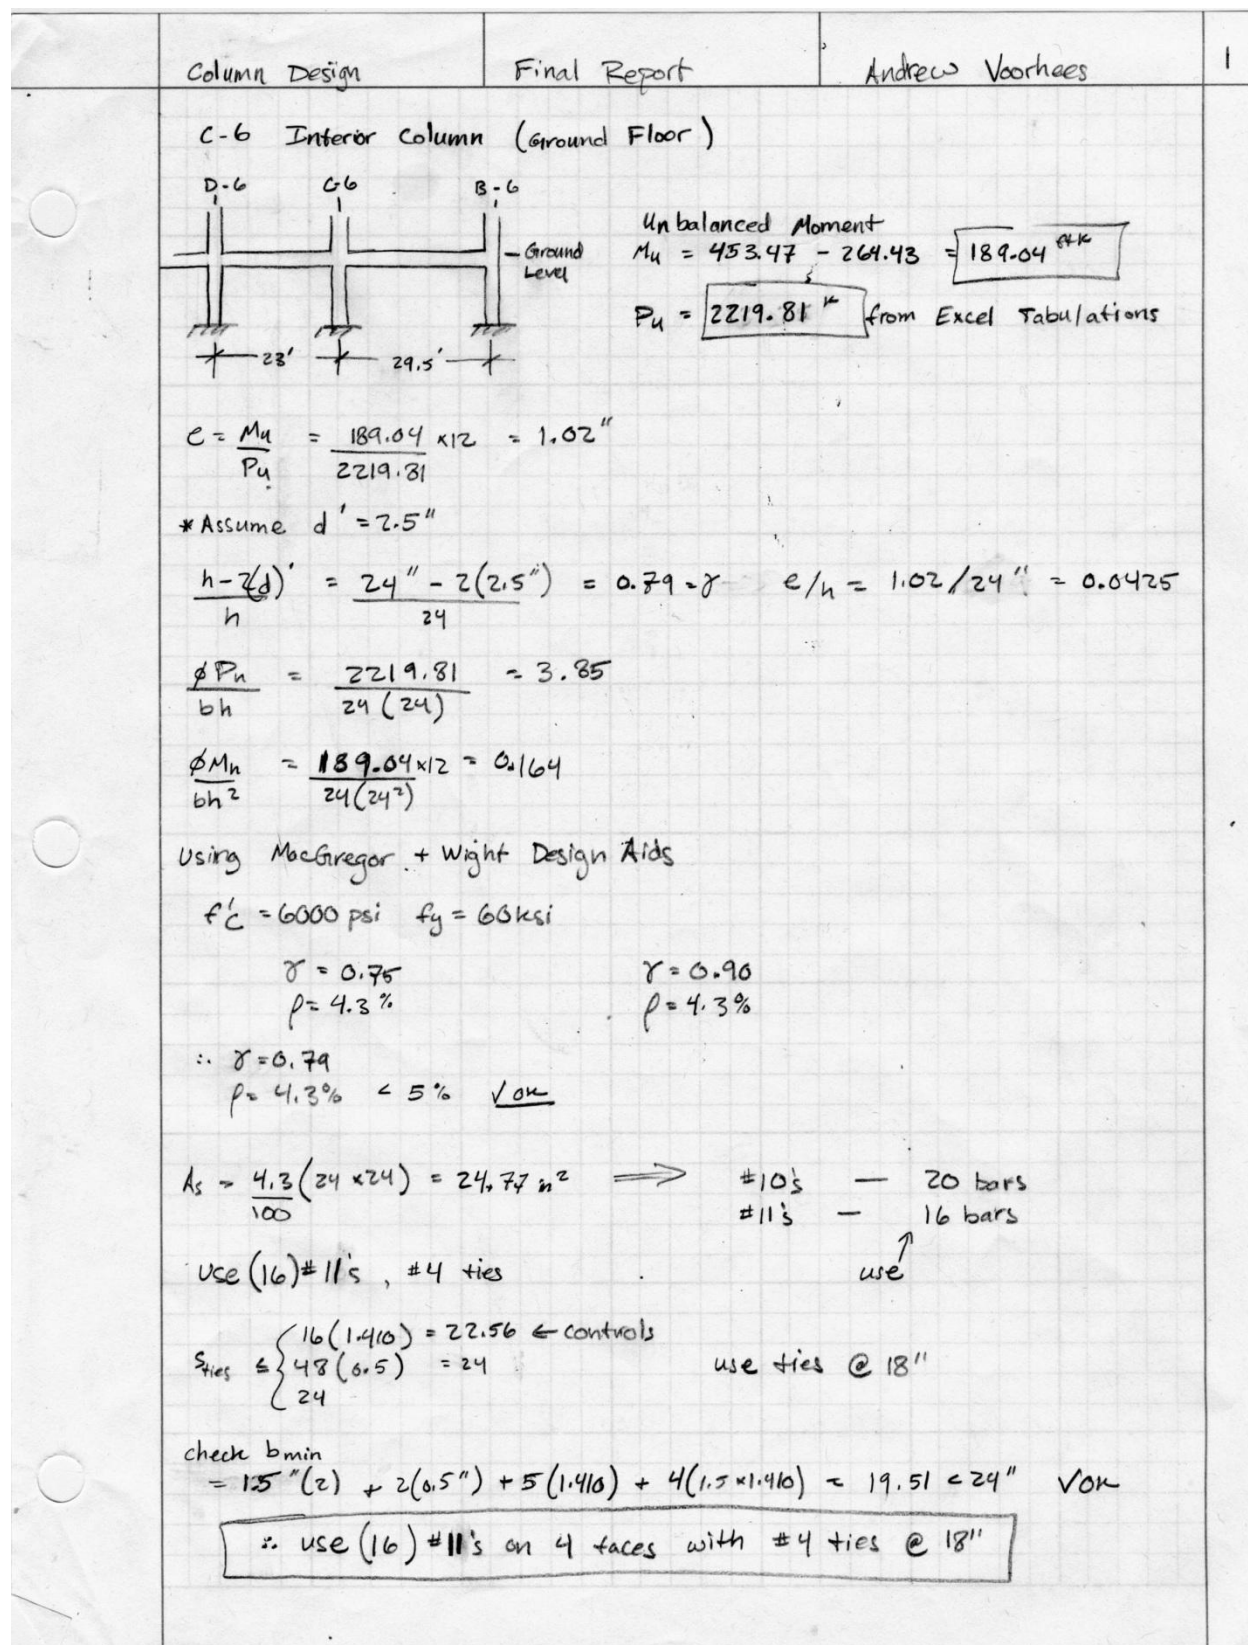 Column Design Final Report Andrew Voorhees 1
C-6 Interior Column (Ground Floor)
D-6 C-6 B-6
Ground
Level
23' 29.5'
Unbalanced Moment
Mu = 453.47 - 264.43 = 189.04 ft-k
Pu = 2219.81 k from Excel Tabulations
e = Mu/Pu = 189.04/2219.81 x12 = 1.02"
*Assume d' = 2.5"
h-2(d)'/h = 24" - 2(2.5")/24 = 0.79 = γ e/h = 1.02/24" = 0.0425
φPn/bh = 2219.81/24(24) = 3.85
φMn/bh² = 189.04x12/24(24²) = 0.164
Using MacGregor + Wight Design Aids
f'c = 6000 psi fy = 60ksi
γ = 0.75 γ = 0.90
ρ = 4.3% ρ = 4.3%
∴ γ = 0.79
ρ = 4.3% < 5% √ OK
As = 4.3/100 (24 x24) = 24.77 in² ⟹ #10's — 20 bars
#11's — 16 bars
use (16) #11's, #4 ties use
S ties ≤ { 16(1.410) = 22.56 ← controls
48(0.5) = 24 use ties @ 18"
24
check bmin
= 1.5"(2) + 2(0.5") + 5(1.410) + 4(1.5x1.410) = 19.51 < 24" √OK
∴ use (16) #11's on 4 faces with #4 ties @ 18"